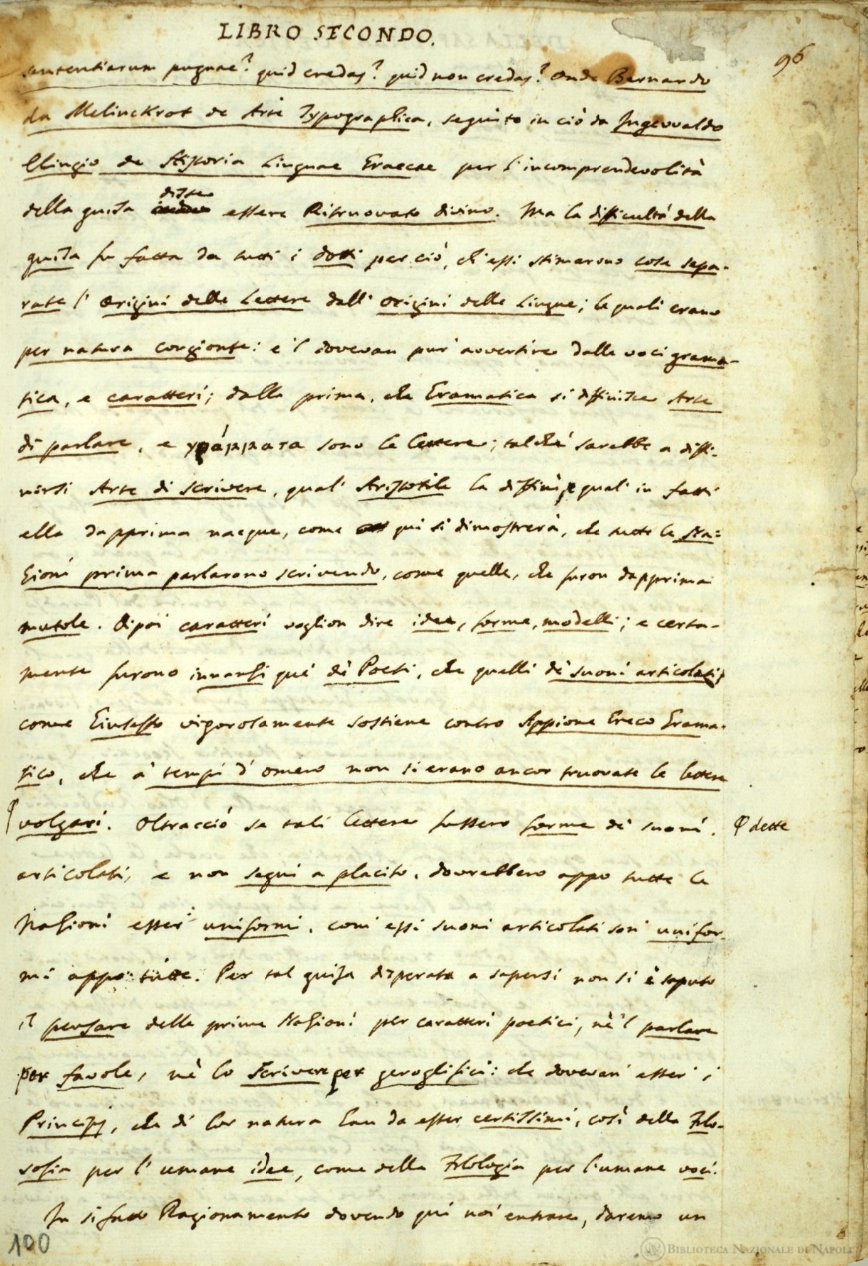 LIBRO SECONDO.
96
sententiarum pugnae? quid credas? quid non credas? onde Bernardo
da Melinckrot de Arte Typographica, seguito in ciò da Ingewaldo
Elingio de Historia Linguae Graecae per l'incomprendevolità
della guisa disse essere Ritruovato divino. Ma la difficultà della
guisa fu fatta da tutti i dotti per ciò, ch'essi stimarono cose sepa-
rate l'Origini delle Lettere dall'Origini delle Lingue; le quali erano
per natura congionte: e 'l dovevan pur avvertire dalle voci grama-
tica, e caratteri; dalla prima, che Gramatica si diffinisce Arte
di parlare, e γράμματα sono le lettere; talchè sarebbe a diffi-
nirsi Arte di Scrivere, qual' Aristotile la diffinì, e qual' in fatti
ella dapprima nacque, come qui si dimostrerà, che tutte le Na-
zioni prima parlarono scrivendo, come quelle, che furon dapprima
mutole. Dipoi caratteri voglion dire idee, forme, modelli; e certa-
mente furono innanzi que' de' Poeti, che quelli de' suoni articolati,
come Giuseffo vigorosamente sostiene contro Appione Greco Grama-
tico, che a' tempi d'Omero non si erano ancor truovate le lettere
φ volgari. Oltracciò se tali lettere fussero forme de' suoni φ dette
articolati, e non segni a placito, dovrebbero appo tutte le
Nazioni esser' uniformi, com' essi suoni articolati son' unifor-
mi appo tutte. Per tal guisa disperata a sapersi non si è saputo
il pensare delle prime Nazioni per caratteri poetici, nè 'l parlare
per favole, nè lo Scrivere per geroglifici: che dovevan' esser' i
Principj, che di lor natura han da esser certissimi, così della Filo-
sofia per l'umane idee, come della Filologia per l'umane voci.
In sì fatto Ragionamento dovendo qui noi entrare, daremo un
100
BIBLIOTECA NAZIONALE DI NAPOLI